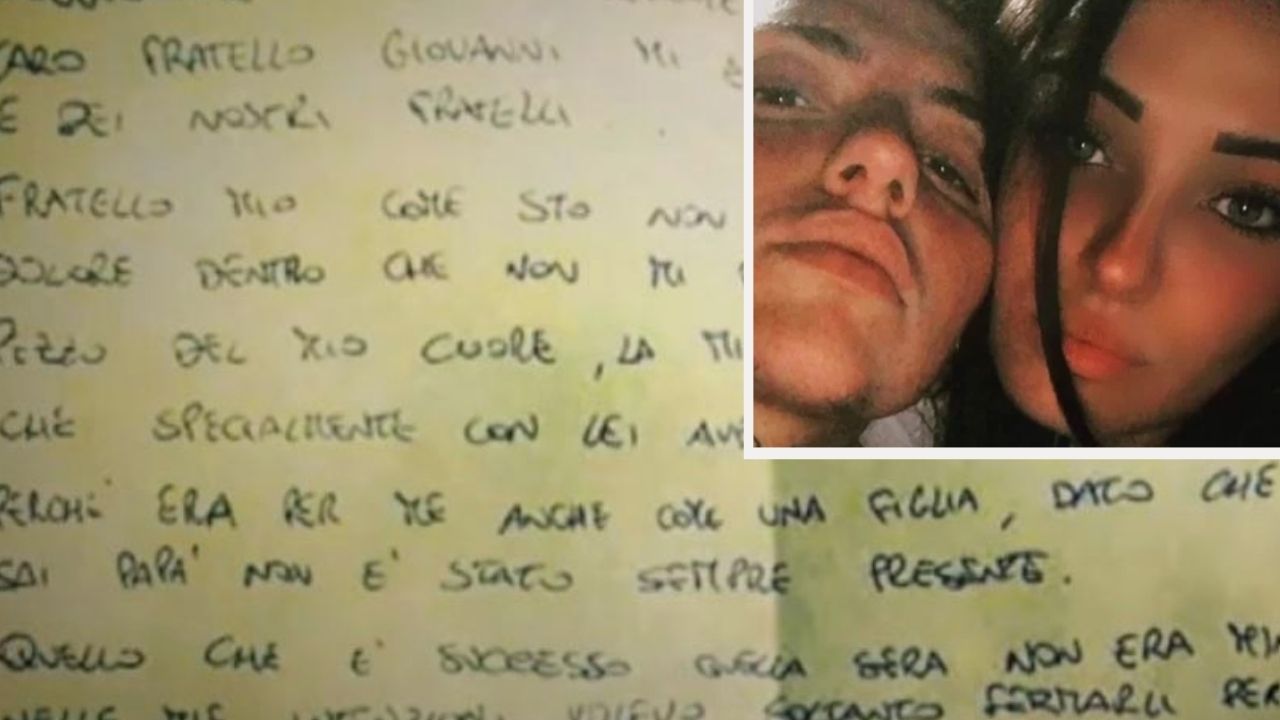 CARO FRATELLO GIOVANNI MI
E DEI NOSTRI FRATELLI .
FRATELLO MIO COME STO NON
DOLORE DENTRO CHE NON MI
PEZZO DEL MIO CUORE, LA MI
CHÈ SPECIALMENTE CON LEI AVE
PERCHÈ ERA PER ME ANCHE COME UNA FIGLIA, DATO CHE
SAI PAPA' NON E' STATO SEMPRE PRESENTE.
QUELLO CHE E' SUCCESSO QUELLA SERA NON ERA
NELLE MIE INTENZIONI VOLEVO SOLTANTO FERMARLI PER